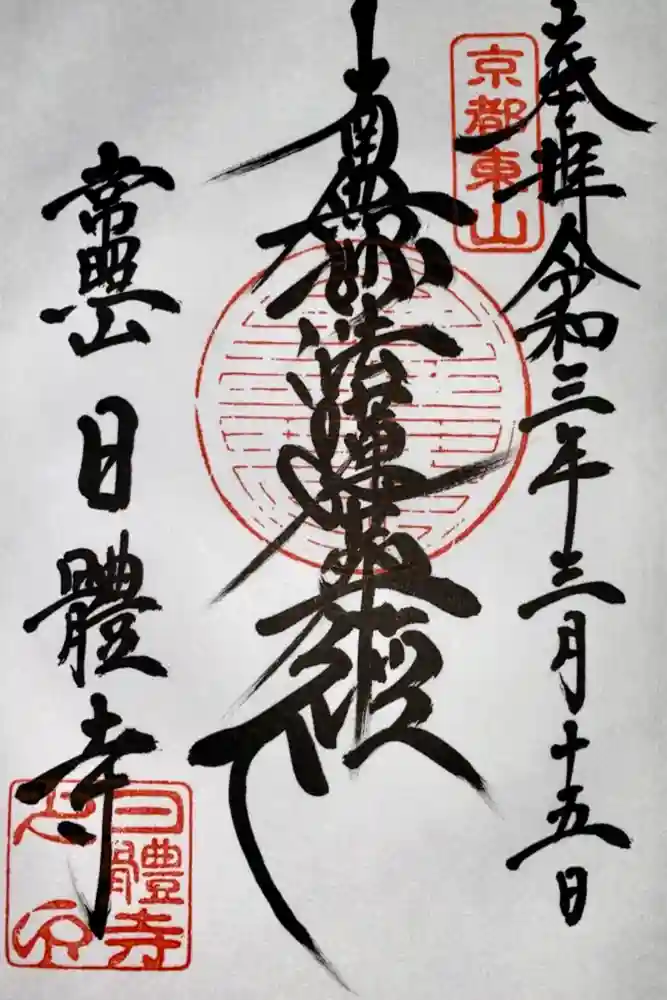 奉拝 令和三年三月十五日
京都東山
南無妙法蓮華経
常照山 日體寺
日體寺